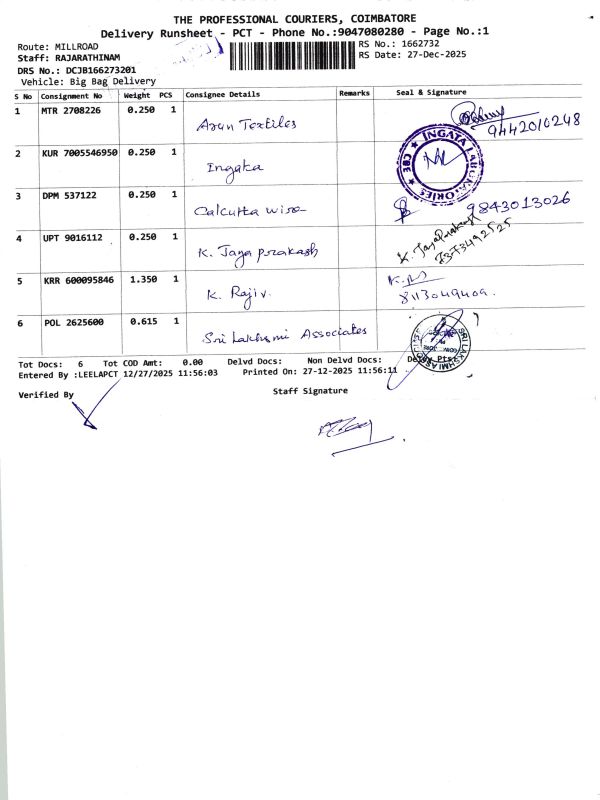 THE PROFESSIONAL COURIERS, COIMBATORE
Delivery Runsheet - PCT - Phone No.:9047080280 - Page No.:1
Route: MILLROAD
RS No.: 1662732
Staff: RAJARATHINAM
RS Date: 27-Dec-2025
DRS No.: DCJB166273201
Vehicle: Big Bag Delivery
S No Consignment No Weight PCS Consignee Details Remarks Seal & Signature
1 MTR 2708226 0.250 1 Arun Textiles 9442010248
2 KUR 7005546950 0.250 1 Ingaka INGAYA LABORATORIES CBE
3 DPM 537122 0.250 1 Calcutta wire 9843013026
4 UPT 9016112 0.250 1 K. Jaya prakash K. JayaPrakash
7373492525
5 KRR 600095846 1.350 1 K. Rajiv.
8113049409.
6 POL 2625600 0.615 1 Sri Lakhsmi Associates SRI LAKSHMI ASSOCIATES
Tot Docs: 6 Tot COD Amt: 0.00 Delvd Docs: Non Delvd Docs:
Entered By :LEELAPCT 12/27/2025 11:56:03 Printed On: 27-12-2025 11:56:11
Verified By Staff Signature